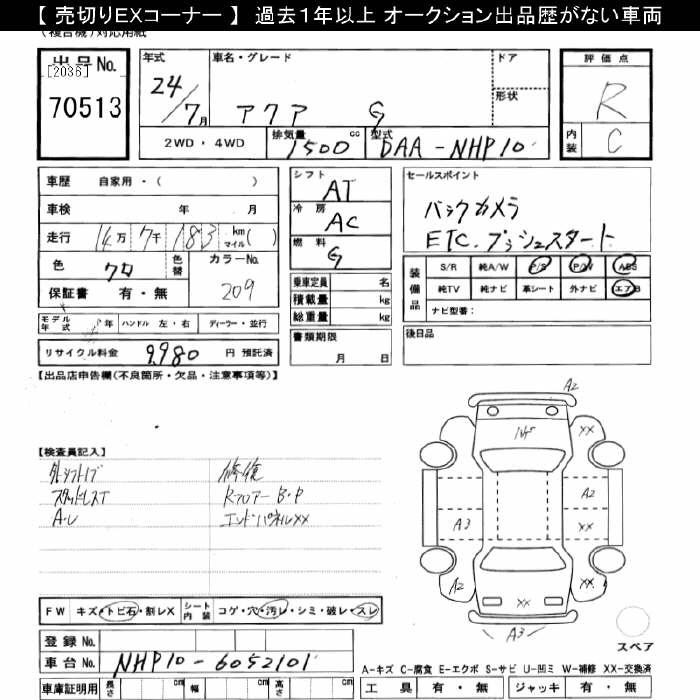 【 売切りEXコーナー 】 過去1年以上 オークション出品歴がない車両
(複合機)対応用紙
出品No. [2036] 70513
年式 24/7月
車名・グレード アクア G
ドア
形状
評価点 R
内装 C
2WD ・ 4WD
排気量 cc 1500
型式 DAA-NHP10
車歴 自家用・( )
車検 年 月
走行 14万 7千 183 km マイル( )
色 クロ
色替
カラーNo. 209
保証書 有・無
モデル年式 年 ハンドル 左・右 ディーラー・並行
リサイクル料金 9,980 円 預託済
シフト AT
冷房 AC
燃料 G
乗車定員 名
積載量 kg
総重量 kg
書類期限 月 日
セールスポイント
バックカメラ
ETC.プッシュスタート
装備品
S/R 純A/W P/S P/W ABS
純TV 純ナビ 革シート 外ナビ エアB
ナビ型番:
後日品
【出品店申告欄(不良箇所・欠品・注意事項等)】
【検査員記入】
スタッドレスT
A・L
修復
Rフロアー B・P
エンドパネルXX
A2
XX
A2
A3
XX
A2
XX
XX
A3
スペア
FW キズ・トビ石・割レX
シート内装 コゲ・穴・汚レ・シミ・破レ・スレ
登録No.
車台No. NHP10-6052101
車庫証明用 長さ cm 幅 cm 高さ cm
A-キズ C-腐食 E-エクボ S-サビ U-凹ミ W-補修 XX-交換済
工具 有・無 ジャッキ 有・無